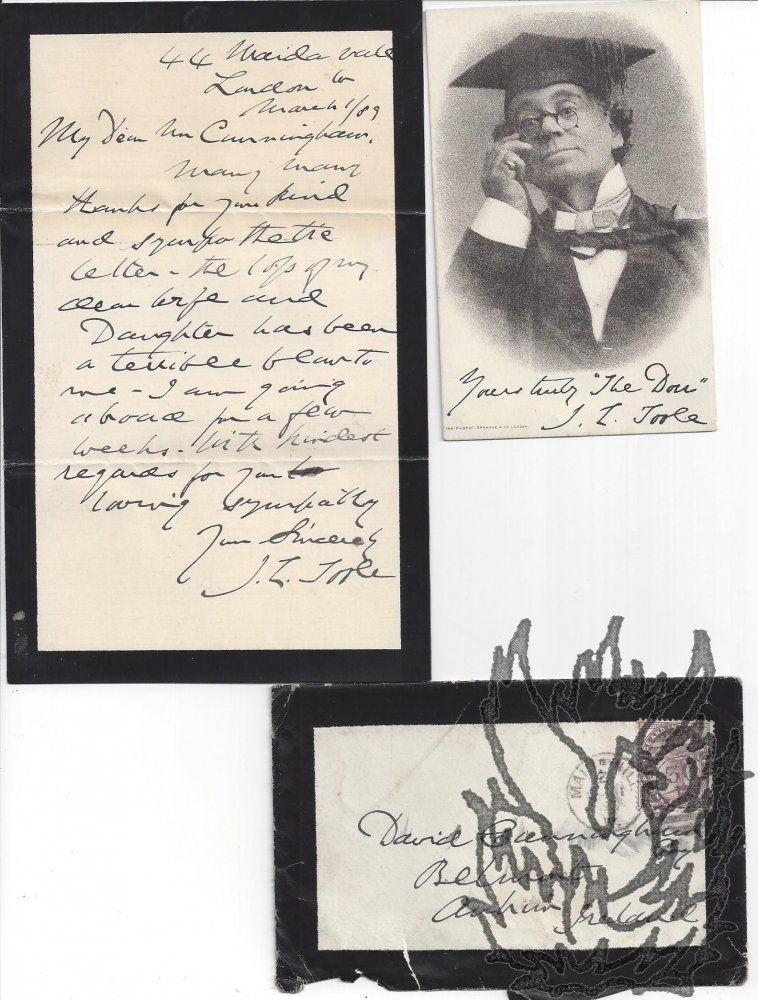 44 Maida Vale
London W
March 1/89
My Dear Mr Cunningham,
Many Many
thanks for your kind
and sympathetic
letter - the loss of my
dear Wife and
Daughter has been
a terrible blow to
me - I am going
abroad for a few
weeks. With kindest
regards for your
loving sympathy
Your Sincerely
J. L. Toole
Yours truly "The Don"
J. L. Toole
SPRAGUE & CO LONDON.
MAI
David Cunningham
Esq
Belmont
Antrim Ireland